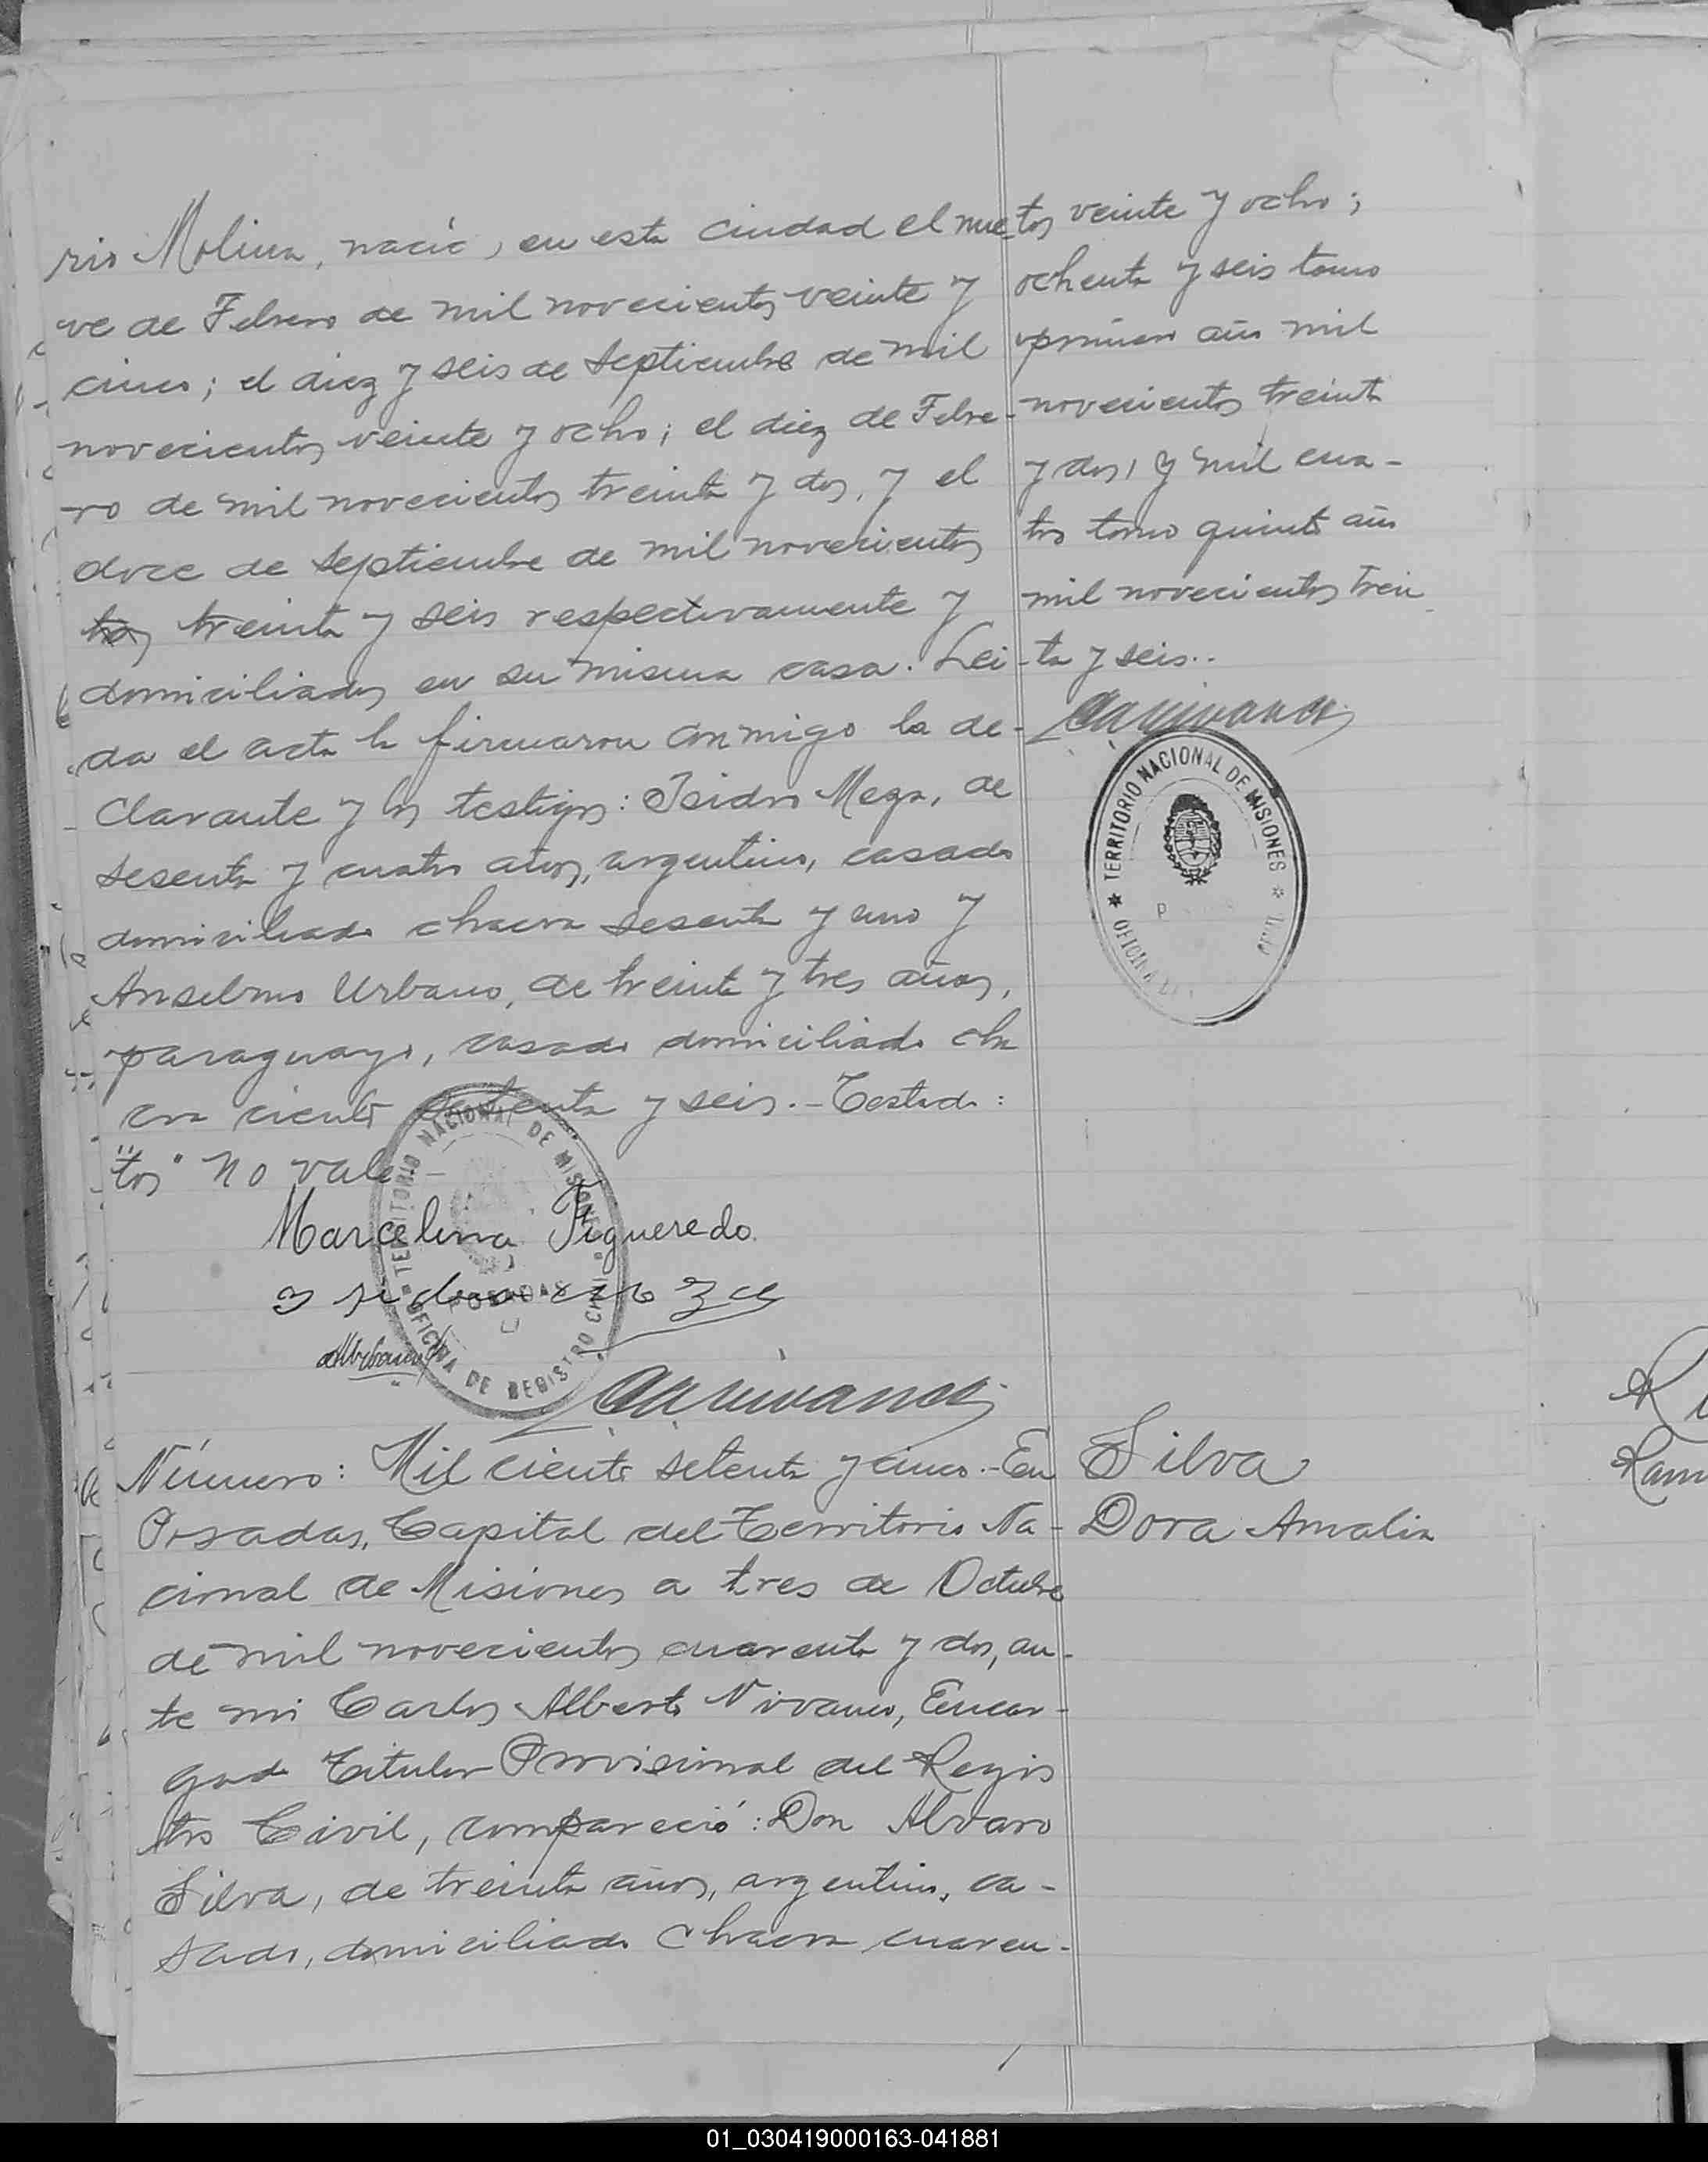 rio Molina, nació, en esta ciudad el nue-
ve de Febrero de mil novecientos veinte y
cinco; el diez y seis de Septiembre de mil
novecientos veinte y ocho; el diez de Febre-
ro de mil novecientos treinta y dos, y el
doce de Septiembre de mil novecientos
tos treinta y seis respectivamente y
domiciliados en su misma casa. Lei-
da el acta la firmaron conmigo la de-
clarante y los testigos: Isidro Meza, de
sesenta y cuatro años, argentino, casado
domiciliado chacra sesenta y uno y
Anselmo Urbano, de treinta y tres años,
paraguayo, casado domiciliado cha
cra ciento setenta y seis.- Testado:
"tos" no vale
Marcelina Figueredo.
AUrbano
tos veinte y ocho;
ochenta y seis tomo
primero año mil
novecientos treinta
y dos, y mil cua-
tro tomo quinto año
mil novecientos trein
ta y seis..
TERRITORIO NACIONAL DE MISIONES
OFICINA DE
TERRITORIO NACIONAL DE MISIONES
POSADAS
OFICINA DE REGISTRO CIVIL
Número: Mil ciento setenta y cinco.- En
Posadas, Capital del Territorio Na-
cional de Misiones a tres de Octubre
de mil novecientos cuarenta y dos, an-
te mi Carlos Alberto Vivanco, Encar-
gado Titular Provisional del Regis
tro Civil, compareció: Don Alvaro
Silva, de treinta años, argentino, ca-
sado, domiciliado Chacra cuaren-
Silva
Dora Amalia
01_030419000163-041881